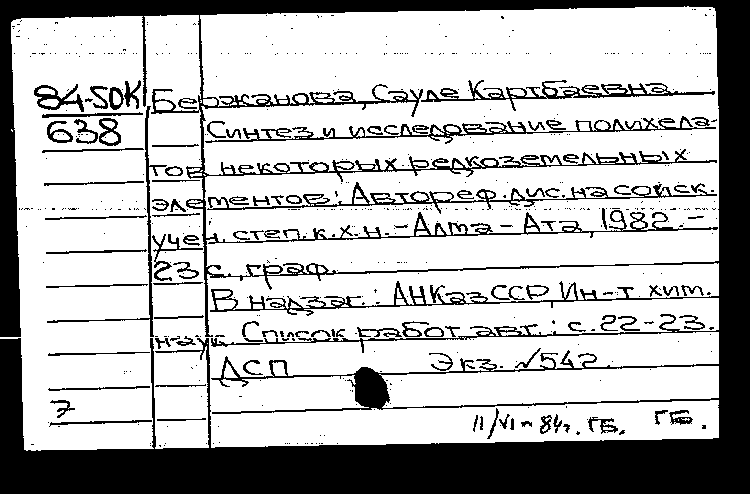 84-5ОК Бержанова, Сауле Картбаевна.
638 Синтез и исследование полихела-
тов некоторых редкоземельных
элементов: Автореф. дис. на соиск.
учен. степ. к.х.н. - Алма-Ата, 1982. -
23 с., граф.
В надзаг.: АН КазССР, Ин-т хим.
наук. Список работ авт.: с. 22-23.
ДСП Экз. №542.
7
11/VI-84г. ГБ. ГБ.